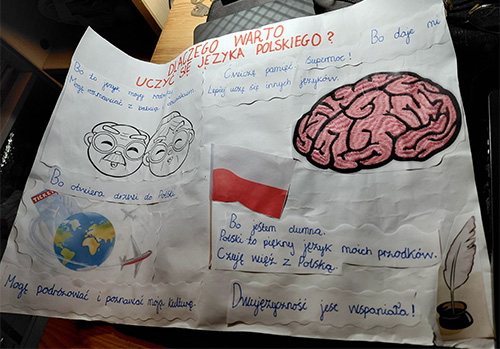 DLACZEGO WARTO
UCZYĆ SIĘ JĘZYKA POLSKIEGO?
Bo to język mojej
Mogę rozmawiać z babcią
Bo daje mi
Supermoc!
Ćwiczę pamięć.
Lepiej uczę się innych języków.
Bo otwiera drzwi do Polski.
TICKET
Mogę podróżować i poznawać moją kulturę.
Bo jestem dumna.
Polski to piękny język moich przodków.
Czuję więź z Polską.
Dwujęzyczność jest wspaniała!